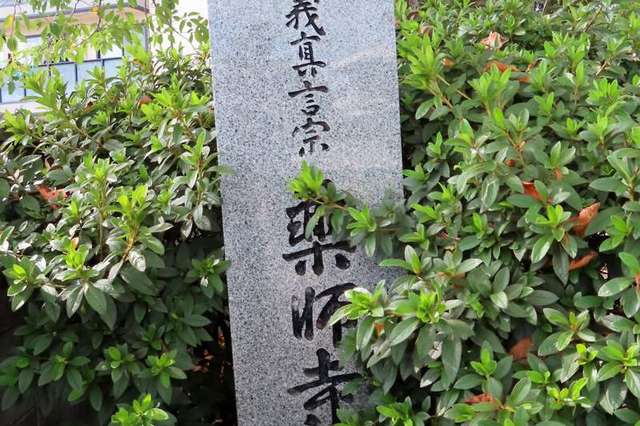 義真言宗
薬師寺